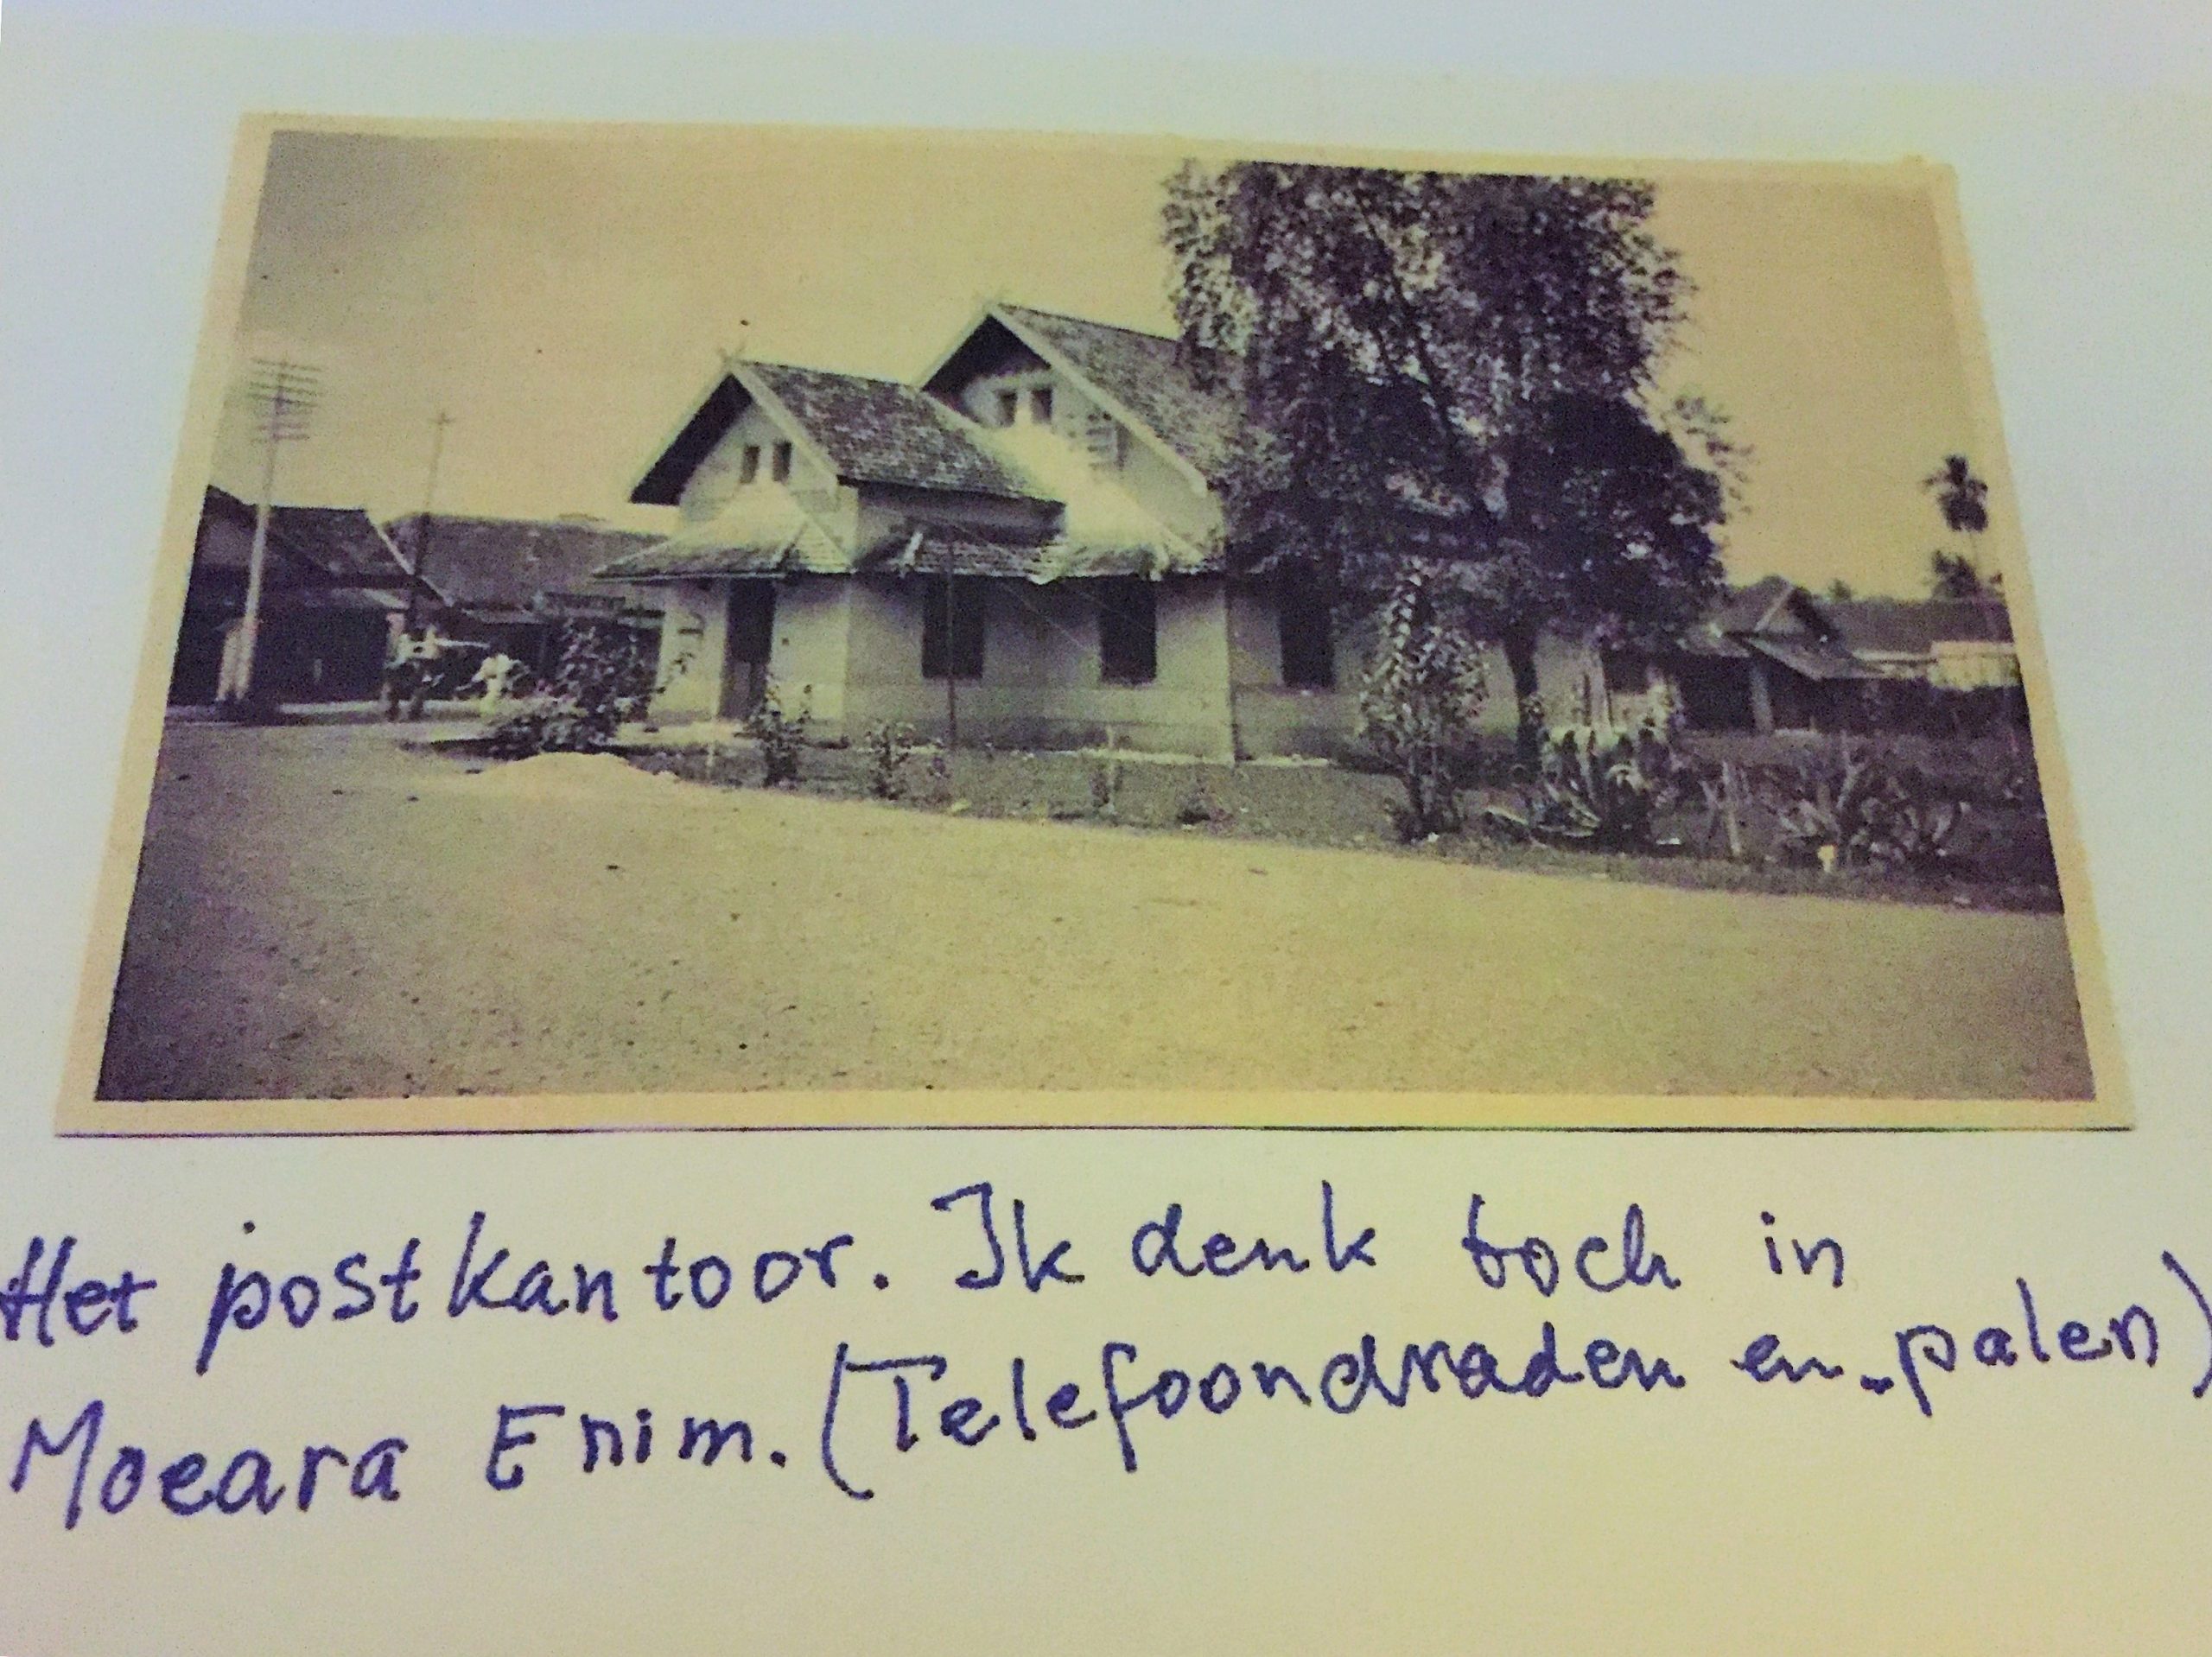 Het postkantoor. Ik denk toch in
Moeara Enim. (Telefoondraden en -palen)